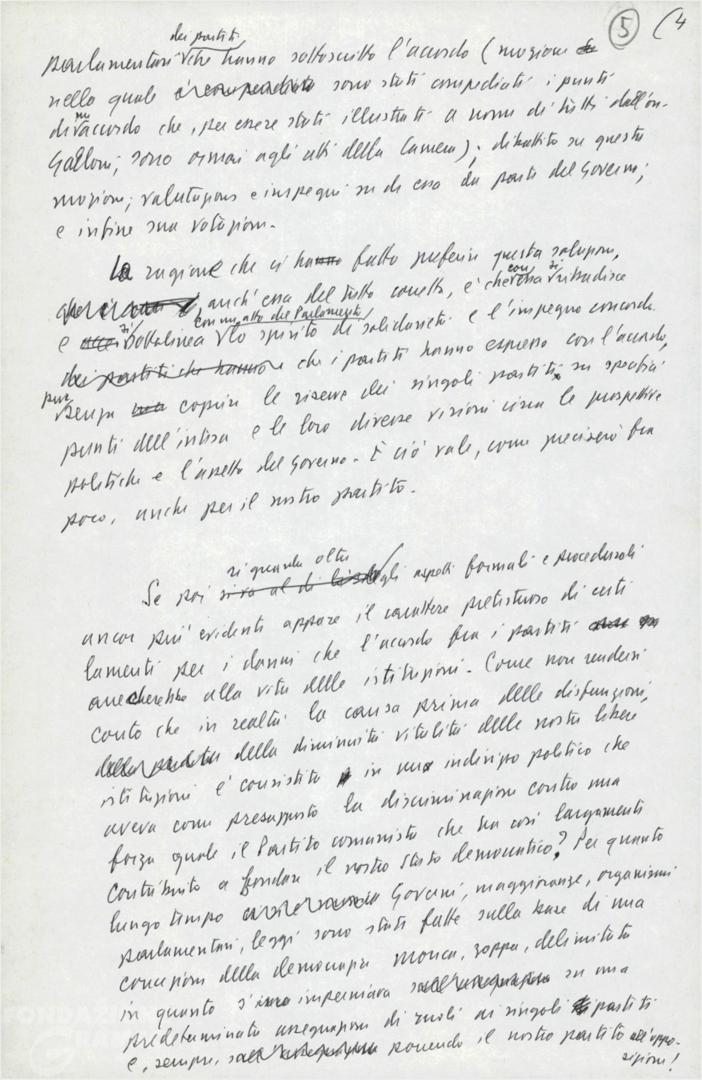 5 (4
dei partiti
parlamentari che hanno sottoscritto l'accordo (mozione
nella quale sono stati compendiati i punti
di un accordo che, per essere stati illustrati a nome di tutti dall'on.
Galloni, sono ormai agli atti della Camera); dibattito su questa
mozione; valutazione e impegni su di essa da parte del Governo;
e infine sua votazione.
La ragione che ci ha fatto preferire questa soluzione,
anch'essa del tutto corretta, è che con essa si ribadisce
e si sottolinea con un atto del Parlamento lo spirito di solidarietà e l'impegno concorde
dei partiti che hanno che i partiti hanno espresso con l'accordo,
pur senza coprire le riserve dei singoli partiti su specifici
punti dell'intesa e le loro diverse visioni circa le prospettive
politiche e l'assetto del Governo. E ciò vale, come preciserò fra
poco, anche per il nostro partito.
Se poi si guarda oltre gli aspetti formali e procedurali
ancor più evidente appare il carattere pretestuoso di certi
lamenti per i danni che l'accordo fra i partiti
arrecherebbe alla vita delle istituzioni. Come non rendersi
conto che in realtà la causa prima delle disfunzioni,
della diminuita vitalità delle nostre libere
istituzioni è consistita in un indirizzo politico che
aveva come presupposto la discriminazione contro una
forza quale il Partito comunista che ha così largamente
contribuito a fondare il nostro Stato democratico? Per quanto
lungo tempo Governi, maggioranze, organismi
parlamentari, leggi sono stati fatti sulla base di una
concezione della democrazia monca, zoppa, delimitata
in quanto s'imperniava su una
predeterminata assegnazione di ruoli ai singoli partiti
e, sempre, ponendo il nostro partito all'oppo-
sizione!
FONDAZIONE